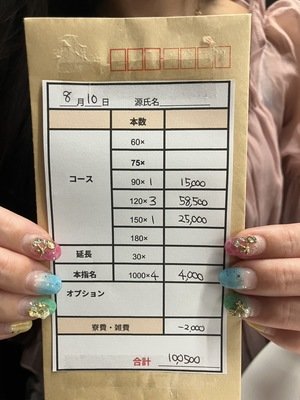 8月10日 源氏名
本数
60×
75×
コース
90×1 15,000
120×3 58,500
150×1 25,000
180×
延長 30×
本指名 1000×4 4,000
オプション
寮費・雑費 -2,000
合計 100,500